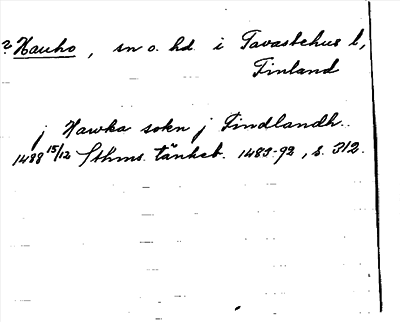 ? Hauho, sn o. hd. i Tavastehus l,
Finland
j Hawka sokn j Findlandh..
1488 15/12 Sthms. tänkeb. 1483-92, s. 312.